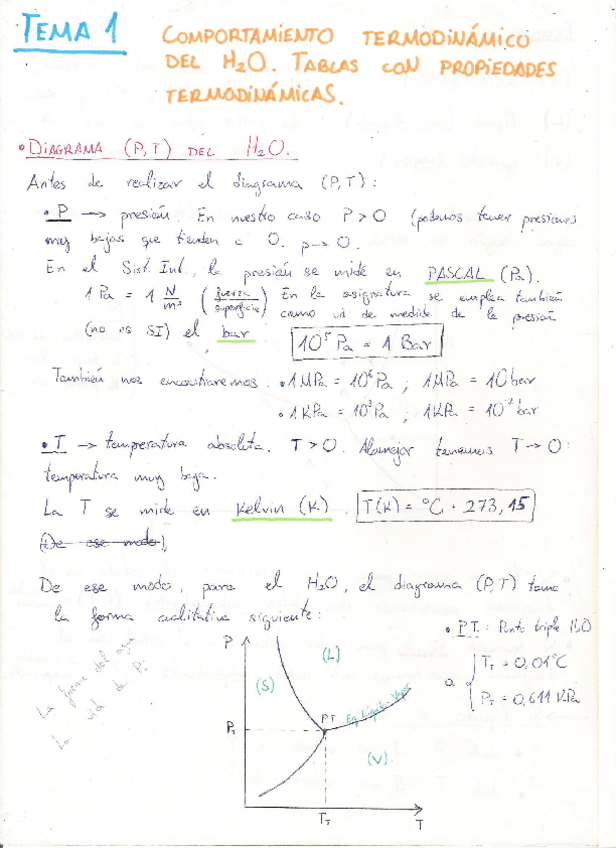 TEMA 1
COMPORTAMIENTO TERMODINÁMICO
DEL H2O. TABLAS CON PROPIEDADES
TERMODINÁMICAS.
• DIAGRAMA (P,T) DEL H2O.
Antes de realizar el diagrama (P,T):
• P → presión En nuestro caso P > 0 (podemos tener presiones
muy bajas que tienden a 0. p → 0.
En el Sist. Int., la presión se mide en PASCAL (Pa).
1 Pa = 1 N/m² (fuerza/superficie) En la asignatura se emplea también
como ud de medida de la presión
(no es SI) el bar
10⁵ Pa = 1 Bar
También nos encontraremos. • 1 MPa = 10⁶ Pa ; 1 MPa = 10 bar
• 1 KPa = 10³ Pa ; 1 KPa = 10⁻² bar
• T → temperatura absoluta. T > 0. Alomejor tenemos T → 0:
temperatura muy baja.
La T se mide en Kelvin (K). T(K) = °C + 273,15
(De ese modo)
De ese modo, para el H2O, el diagrama (P,T) toma
la forma cualitativa siguiente:
• P.T.: Punto triple H2O
TT = 0,01°C
PT = 0,611 KPa
La forma del
La vid de P:
P
(S)
(L)
Eq Líquido-Vapor
PT
PT
(V)
TT
T